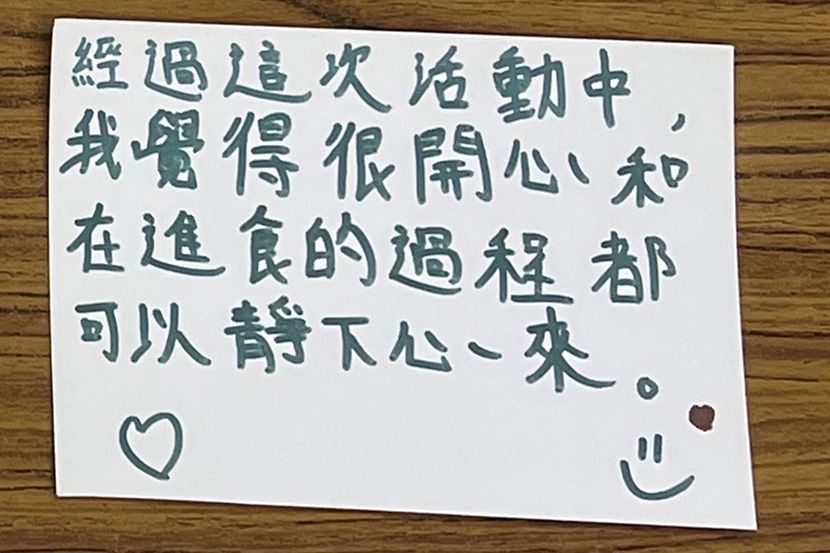 經過這次活動中，
我覺得很開心、和
在進食的過程都
可以靜下心來。